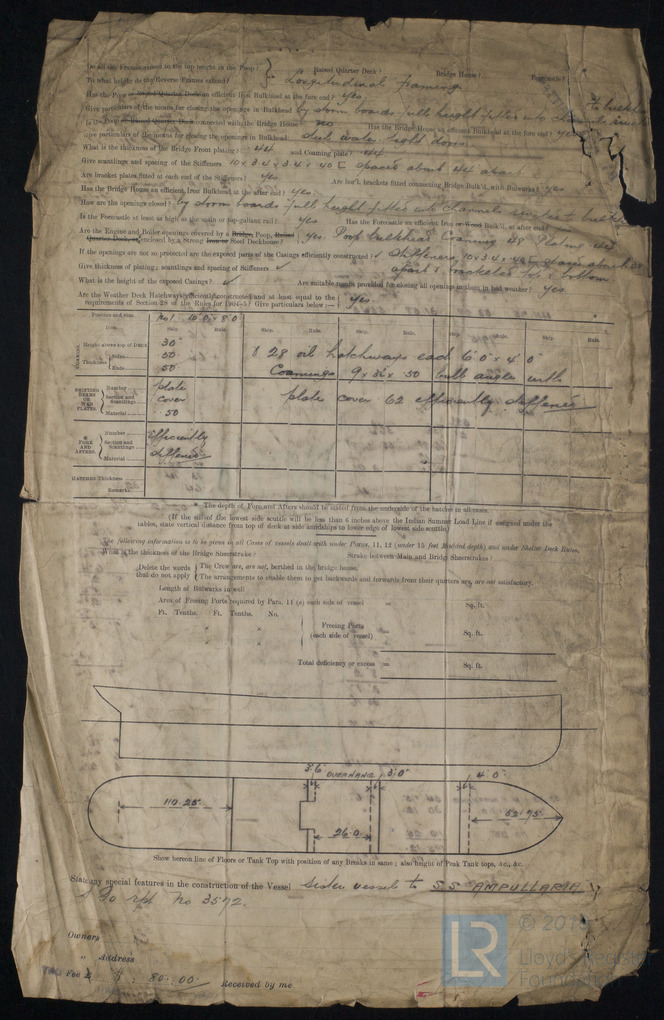 Do all the Frames extend to the top height in the Poop? Raised Quarter Deck? Bridge House? Forecastle?
To what height do the Reverse Frames extend? Longitudinal framing
Has the Poop or Raised Quarter Deck an efficient Iron Bulkhead at the fore end? yes
Give particulars of the means for closing the openings in Bulkhead by storm boards full height fitted into channels
Is the Poop or Raised Quarter Deck connected with the Bridge House no Has the Bridge House an efficient Bulkhead at the fore end? yes
Give particulars of the means for closing the openings in Bulkhead water tight doors
What is the thickness of the Bridge Front plating? .44 and Coaming plate? .44
Give scantlings and spacing of the Stiffeners 10 x 3.4 x 3.4 x .40 [ spaces about 44 apart
Are bracket plates fitted at each end of the Stiffeners? yes Are hor'l. brackets fitted connecting Bridge Bulk'd. with Bulwarks? yes
Has the Bridge House an efficient Iron Bulkhead at the after end? yes
How are the openings closed? by storm boards full height fitted into channels
Is the Forecastle at least as high as the main or top-gallant rail? yes Has the Forecastle an efficient Iron or Wood Bulk'd. at after end?
Are the Engine and Boiler openings covered by a Bridge, Poop, Raised yes Poop bulkhead Coaming .48 Plating .44
Quarter Deck, or enclosed by a Strong Iron or Steel Deckhouse?
If the openings are not so protected are the exposed parts of the Casings efficiently constructed? ✓ Stiffeners, 10 x 3.4 x
Give thickness of plating; scantlings and spacing of Stiffeners ✓ apart & bracketed top & bottom
What is the height of the exposed Casings? ✓ Are suitable means provided for closing all openings in them in bad weather? yes.
Are the Weather Deck Hatchways efficiently constructed and at least equal to the
requirements of Section 28 of the Rules for 1904-5? Give particulars below:— yes
Position and size. No 1 10'0" x 8'0"
Item. Ship. Rule. Ship. Rule. Ship. Rule. Ship. Rule.
COAMING Height above top of DECK 30"
Thickness Sides .50 & 28 oil hatchways each 6'0" x 4'0"
Ends .50 Coamings 9 x 36 x .50 bulb angle with
SHIFTING BEAMS OR WEB PLATES. Number plate plate cover .62 efficiently stiffened
Section and Scantlings cover
Material .50
* FORE AND AFTERS. Number efficiently
Section and Scantlings
Material stiffened
HATCHES Thickness
Remarks.
* The depth of Fore and Afters should be stated from the underside of the hatches in all cases.
(If the sill of the lowest side scuttle will be less than 6 inches above the Indian Summer Load Line if assigned under the
tables, state vertical distance from top of deck at side amidships to lower edge of lowest side scuttle)
The following information is to be given in all Cases of vessels dealt with under Paras. 11, 12 (under 15 feet Moulded depth) and under Shelter Deck Rules.
What is the thickness of the Bridge Sheerstrake? Strake between Main and Bridge Sheerstrakes?
Delete the words that do not apply { The Crew are, are not, berthed in the bridge house.
The arrangements to enable them to get backwards and forwards from their quarters are, are not satisfactory.
Length of Bulwarks in well
Area of Freeing Ports required by Para. 11 (e) each side of vessel = Sq. ft.
Ft. Tenths. Ft. Tenths. No.
× × Freeing Ports Sq. ft.
× × (each side of vessel)
Total deficiency or excess = Sq. ft.
3'6" OVERHANG 3'0" 4'0"
110.25 26.0 52.75
Show hereon line of Floors or Tank Top with position of any Breaks in same; also height of Peak Tank tops, &c., &c.
State any special features in the construction of the Vessel Sister vessel to S.S "AMPULLARIA"
no 3572.
Owners
" Address
Fee £ : 80.00 Received by me
LR
Lloyd's Register
Foundation